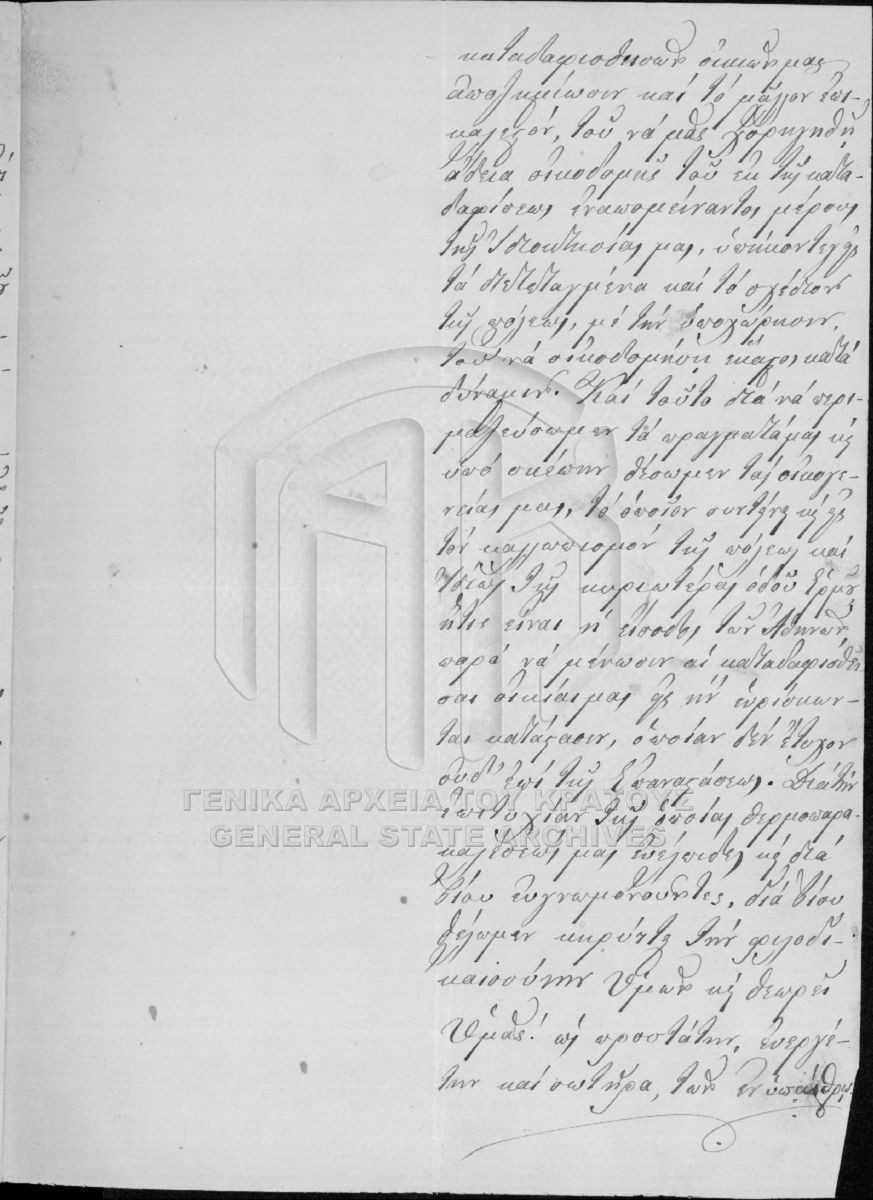 καταδαφισθεισῶν οἰκιῶν μας
ἀποζημίωσιν καὶ τὸ μᾶλλον ἐπι-
καλεστόν, τοῦ νὰ μᾶς χορηγηθῇ
ἄδεια οἰκοδομῆς τοῦ ἐκ τῆς κατα-
δαφίσεως ἐναπομείναντος μέρους
τῆς Ἰδιοκτησίας μας,
τὰ διατεταγμένα καὶ τὸ σχέδιον
τῆς πόλεως, μὲ τὴν ὑποχώρησιν,
τοῦ νὰ οἰκοδομήσῃ ἕκαστος κατὰ
δύναμιν. Καὶ τοῦτο διὰ νὰ περι-
μαζεύσωμεν τὰ πράγματά μας κ
ὑπὸ σκέπην θέσωμεν τὰς οἰκογε-
νείας μας, τὸ ὁποῖον συντείνει κ εἰς
τὸν καλλωπισμὸν τῆς πόλεως καὶ
ἰδίως τῆς κυριωτέρας ὁδοῦ Ἑρμοῦ
ἥτις εἶναι ἡ εἴσοδος τῶν Ἀθηνῶν
παρὰ νὰ μένωσιν αἱ καταδαφισθεῖ
σαι οἰκίαι μας εἰς ἣν εὑρίσκων-
ται κατάστασιν, ὁποίαν δὲν ἔτυχον
οὐδ' ἐπὶ τῆς Ἐπαναστάσεως. Διὰ τὴν
ἐπιτυχίαν τῆς ὁποίας θερμοπαρα-
καλέσεώς μας εὐέλπιδες κ διὰ
βίου εὐγνωμονοῦντες, διὰ βίου
θέλομεν κηρύττει τὴν φιλοδι-
καιοσύνην Ὑμῶν κ θεωρεῖ
Ὑμᾶς! ὡς προστάτην, εὐεργέ-
την καὶ σωτῆρα, τῶν ἐν ὑπαίθρῳ
ΓΕΝΙΚΑ ΑΡΧΕΙΑ ΤΟΥ ΚΡΑΤΟΥΣ
GENERAL STATE ARCHIVES